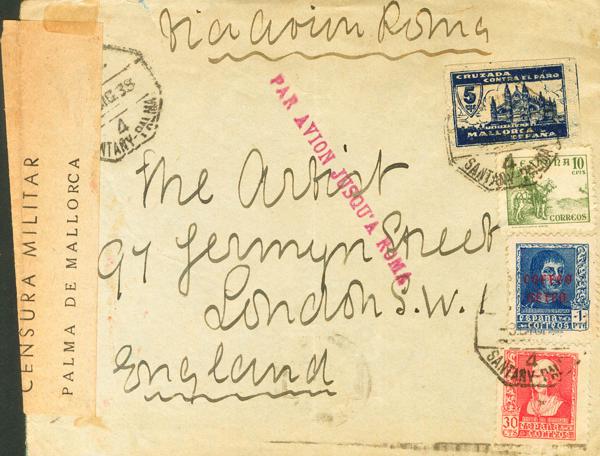 Via avion Roma
CENSURA MILITAR
PALMA DE MALLORCA
DIC. 38
4
SANTANY-PALMA
PAR AVION JUSQU'A ROMA
The Artist
97 Jermyn Street
London S.W.1
England
CRUZADA
CONTRA EL PARO
5
MALLORCA
ESPAÑA
4
SANTANY-PALMA
ESPAÑA
10
CTS
CORREOS
CORREO
AEREO
1
PTA
ESPAÑA
CORREOS
4
SANTANY-PAL
30
CTS
ESPAÑA
CORREOS